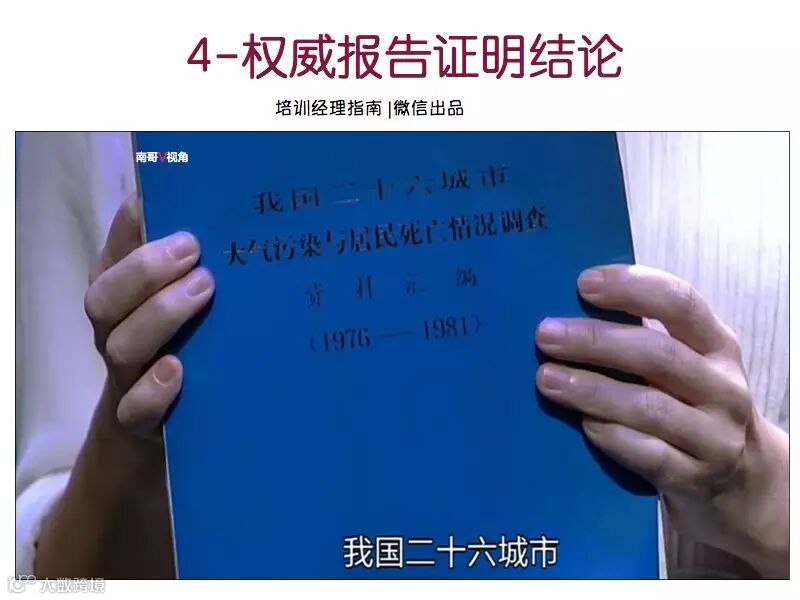 4-权威报告证明结论
培训经理指南 |微信出品
南哥V视角
我国二十六城市
大气污染与居民死亡情况调查
资料汇编
(1976——1981)
我国二十六城市
大数跨境